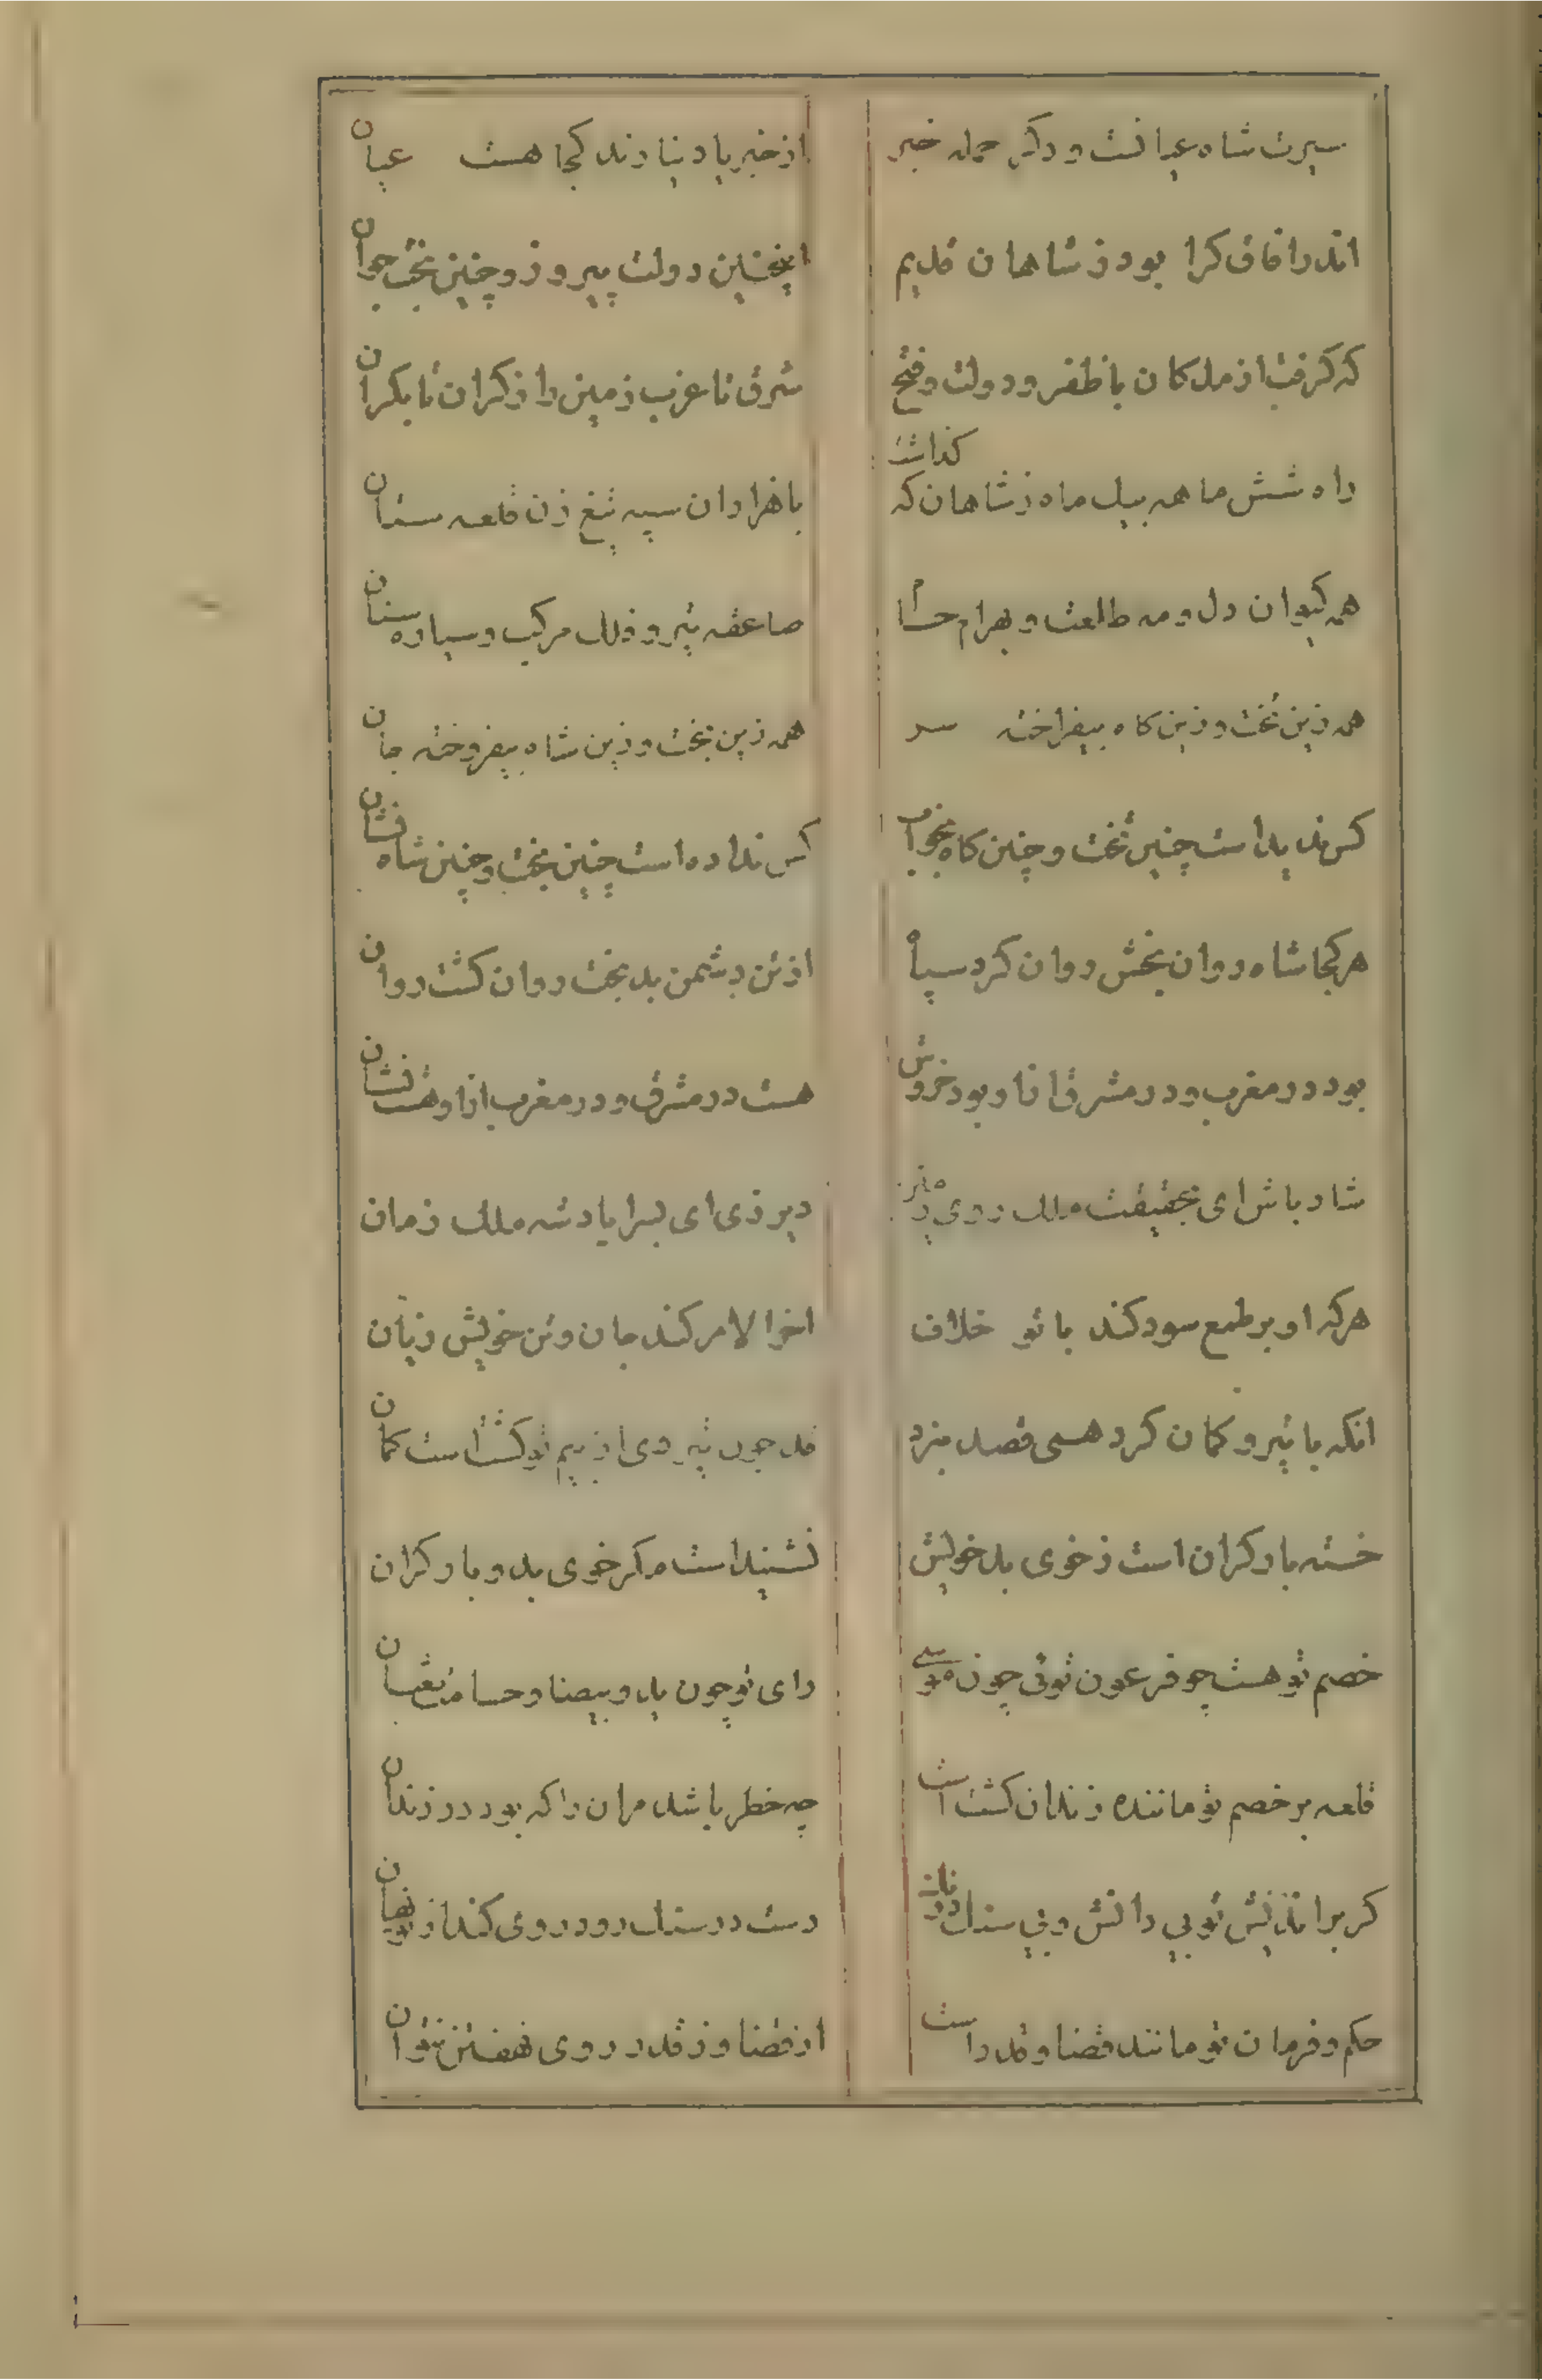 سیرت شاه عیانست و دکر جمله خبر
از خبر یاد نیارند کجا هست عیان
اندر افاق کرا بود ز شاهان قدیم
اینچنین دولت پیروز و چنین بخت جوان
که کرفت از ملکان با ظفر و دولت و فتح
شرق تا غرب زمین را ز کران تا بکران
راه شش ماهه بیک ماه ز شاهان که کذاشت
با هزاران سپه تیغ زن قلعه ستان
همه کیوان دل و مه طلعت و بهرام حسام
صاعقه تیر و فلک مرکب و سیاره سنان
همه زین تخت و زین کاه بیفراخته سر
همه زین بخت و زین شاه بیفروخته جان
کس ندید است چنین تخت و چنین کاه بخواب
کس نداده است چنین بخت و چنین شاه نشان
هر کجا شاه روان بخش روان کرد سپاه
از تن دشمن بد بخت روان کشت روان
بود در مغرب و در مشرق ازو بود خروش
هست در مشرق و در مغرب ازو هست نشان
شاد باش ای بحقیقت ملک روی زمین
دیر زی ای بسزا پادشه ملک زمان
هر که او بر طمع سود کند با تو خلاف
اخر الامر کند جان و تن خویش زیان
انکه با تیر و کمان کرد همی قصد نبرد
قد چون تیر وی از بیم تو کشتست کمان
خسته بار کران است ز خوی بد خویش
نشنید است مکر خوی بد و بار کران
خصم تو هست چو فرعون توئی چون موسی
رای تو چون ید و بیضا و حسامت ثعبان
قلعه بر خصم تو ماننده زندان کشت است
چه خطر باشد مران را که بود در زندان
کر براندیش تو بی دانش و بی سنک
دست در سنک رود روی کند از تو نهان
حکم و فرمان تو مانند قضا و قدر است
از قضا و ز قدر روی نهفتن نتوان